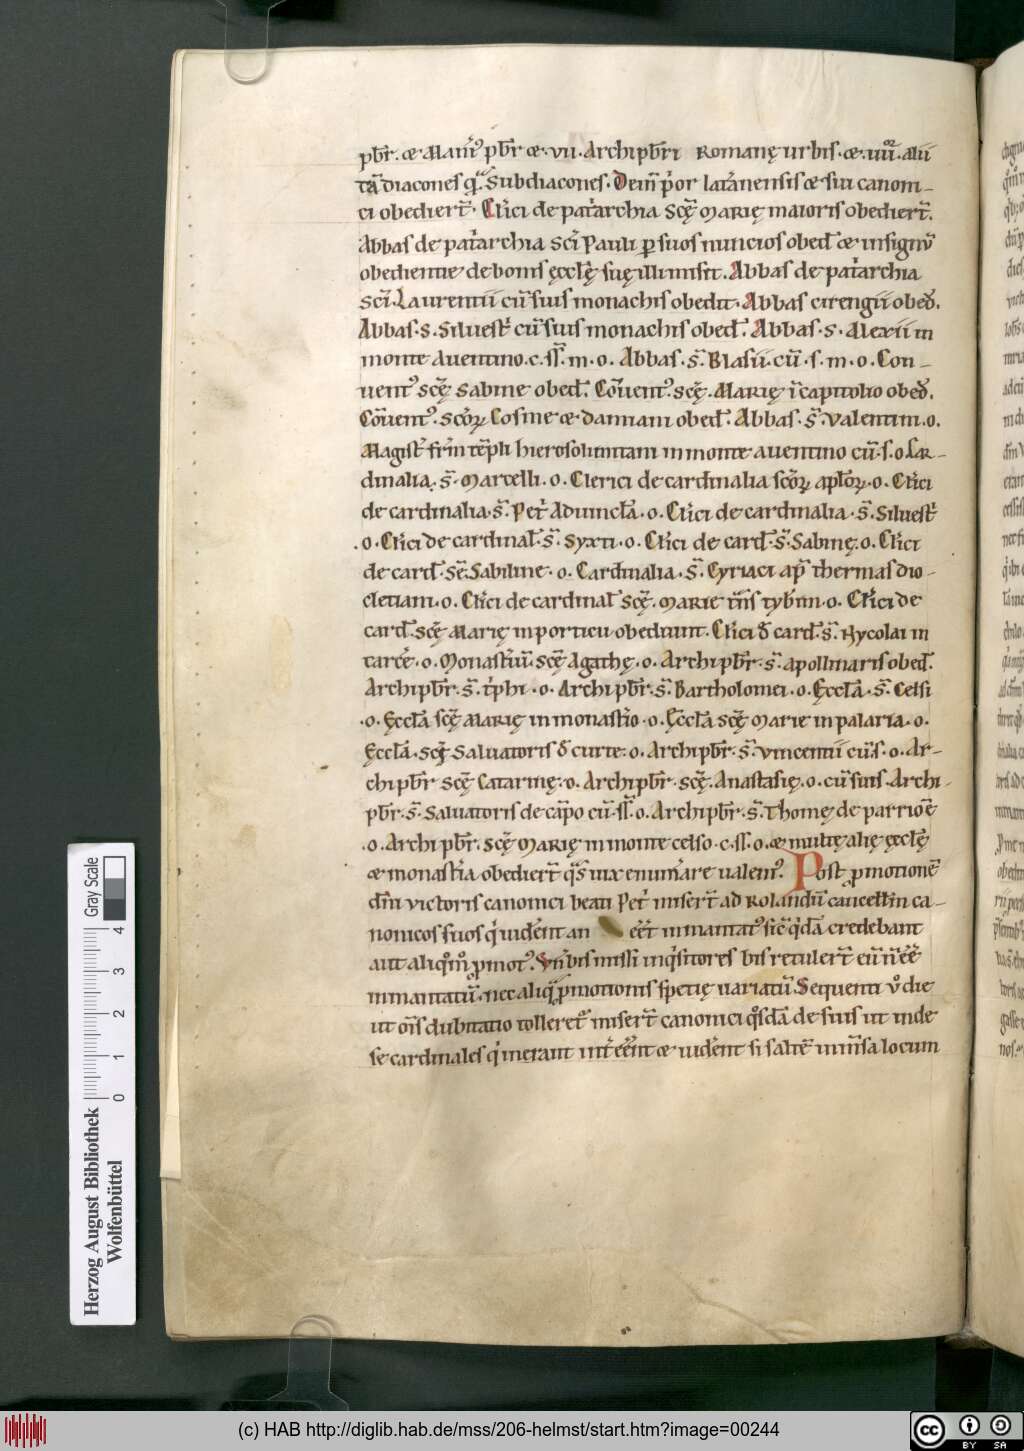 pbr̄. & Manni᷒ pbr̄ &. vii. Archipbr̄i Romanę urbis. &. iiiior. alii
tā diacones qͣ. Subdiacones. Dein̄ p̓or lat̓anensis & sui canoni-
ci obediert̄. Cl̓ici de pat̓archia scę̄ Marię maioris obediert̄.
Abbas de pat̓archia sci̅ Pauli ꝑ suos nuncios obed̄ & insignū
obedientie de bonis ęccl̄ę suę illi misit. Abbas de pat̓archia
sci̅. Laurentii cū suis monachis obedit. Abbas cirengii obed̄.
Abbas. S. Siluest̓ cū suis monachis obed̄. Abbas. S. Alexii in
monte Auentino. c. ss̄. m. o. Abbas. S̄. Blasii. cū. s. m. o. Con-
uent᷒ scę̄ Sabine obed̄. Cōuent᷒. scę̄. Marię ī capitolio obed̄.
Cōuent᷒. scōꝝ Cosme &. damiani obed̄. Abbas. S̄. Valentini. o.
Magist̓ fr̄m tēpli hierosolimitani in monte auentino cū. s. o. Car-
dinalia. S̄. Marcelli. o. Clerici de cardinalia scōꝝ apl̄oꝝ. o. Cl̓ici
de cardinalia. S̄. Pet̓ Aduincl̄a. o. Cl̓ici de cardinalia. S̄. Siluest̓
. o. Cl̓ici de cardinal̄. S̄. Syxti. o. Cl̓ici de card̄. S̄. Sabinę. o. Cl̓ici
de card̄. Sē. Sabiline. o. Cardinalia. S̄. Cyriaci ap̄ thermas dio-
cletiani. o. Cl̓ici de cardinal̄ scę̄. Marie tn̄s tyb̓im. o. Cl̓ici de
card̄. scę̄ Marię in porticu obediunt. Cl̓ici đ card̄. S̄. Nycolai in
carcē. o. Monast̓iū. scę̄ Agathę. o. Archipbr̄. S̄. apollinaris obed̄.
Archipbr̄. S̄. t̓phi. o. Archipbr̄. S̄. Bartholomei. o. Ęccl̄a. S̄. Celsi
. o. Ęccl̄a scę̄ Marię in monast̓io. o. Ęccl̄a scę̄ Marie in palaria. o.
Ęccl̄a. sci̅ Saluatoris đ curte. o. Archipbr̄. S̄. Vincentii cū. s. o. Ar-
chipbr̄ scę̄ Catarinę. o. Archipbr̄. scę̄. Anastasię. o. cū suis. Archi-
pbr̄. S̄. Saluatoris de cāpo cū. ss̄. o. Archipbr̄. S̄. Thomę de parriōe
. o. Archipbr̄. scę̄ Marię in monte celso. c. ss̄. o. & multę alię ęccl̄ę
& monast̓ia obediert̄ qͣs uix enum̓are ualem᷒. Post ꝓmotionē
dn̄i Victoris canonici beati Pet̓ misert̄ ad Rolandū cancell̄in ca-
nonicos suos q̓ uid̓ent an eēt inmantat᷒ sic̄ q̓dā credebant
aut aliqͦm̊ ꝓmot᷒. Vn̄ bis missi inq̓sitores bis retulert̄ eū n̄ eē
inmantatū. nec aliqͣ ꝓmotionis spetię uariatū. Sequenti ů die
ut oīs dubitatio tolleret᷒ misert̄ canonici qͦsdā de suis ut inde
se cardinales q̓ inerant int̓eēnt & uid̓ent si saltē in mn̄sa locum
Herzog August Bibliothek
Wolfenbüttel
0 1 2 3 4
Gray Scale
(c) HAB http://diglib.hab.de/mss/206-helmst/start.htm?image=00244
cc BY SA